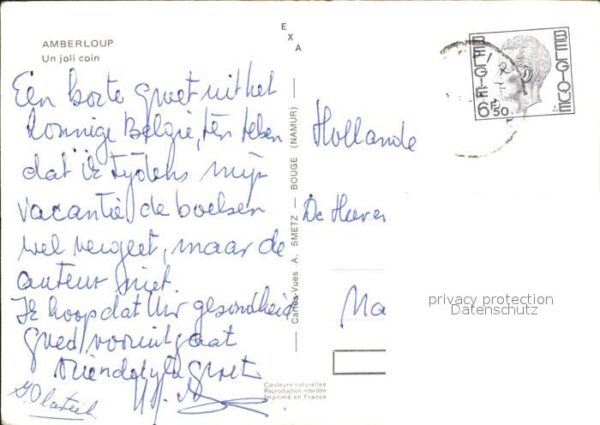 AMBERLOUP
Un joli coin
EXA
Een korte groet uit het
zonnige Belgie, ten teken
dat ik tijdens mijn
vacantie de boeken
wel vergeet, maar de
auteur niet.
Ik hoop dat Uw gezondheid
goed vooruit gaat
vriendelijke groet
Cartes Vues A. SMETZ — BOUGE (NAMUR)
BELGIE
BELGIQUE
6F50
Hollande
De Heer
Ma
privacy protection
Datenschutz
Couleurs naturelles
Reproduction interdite
Imprimé en France